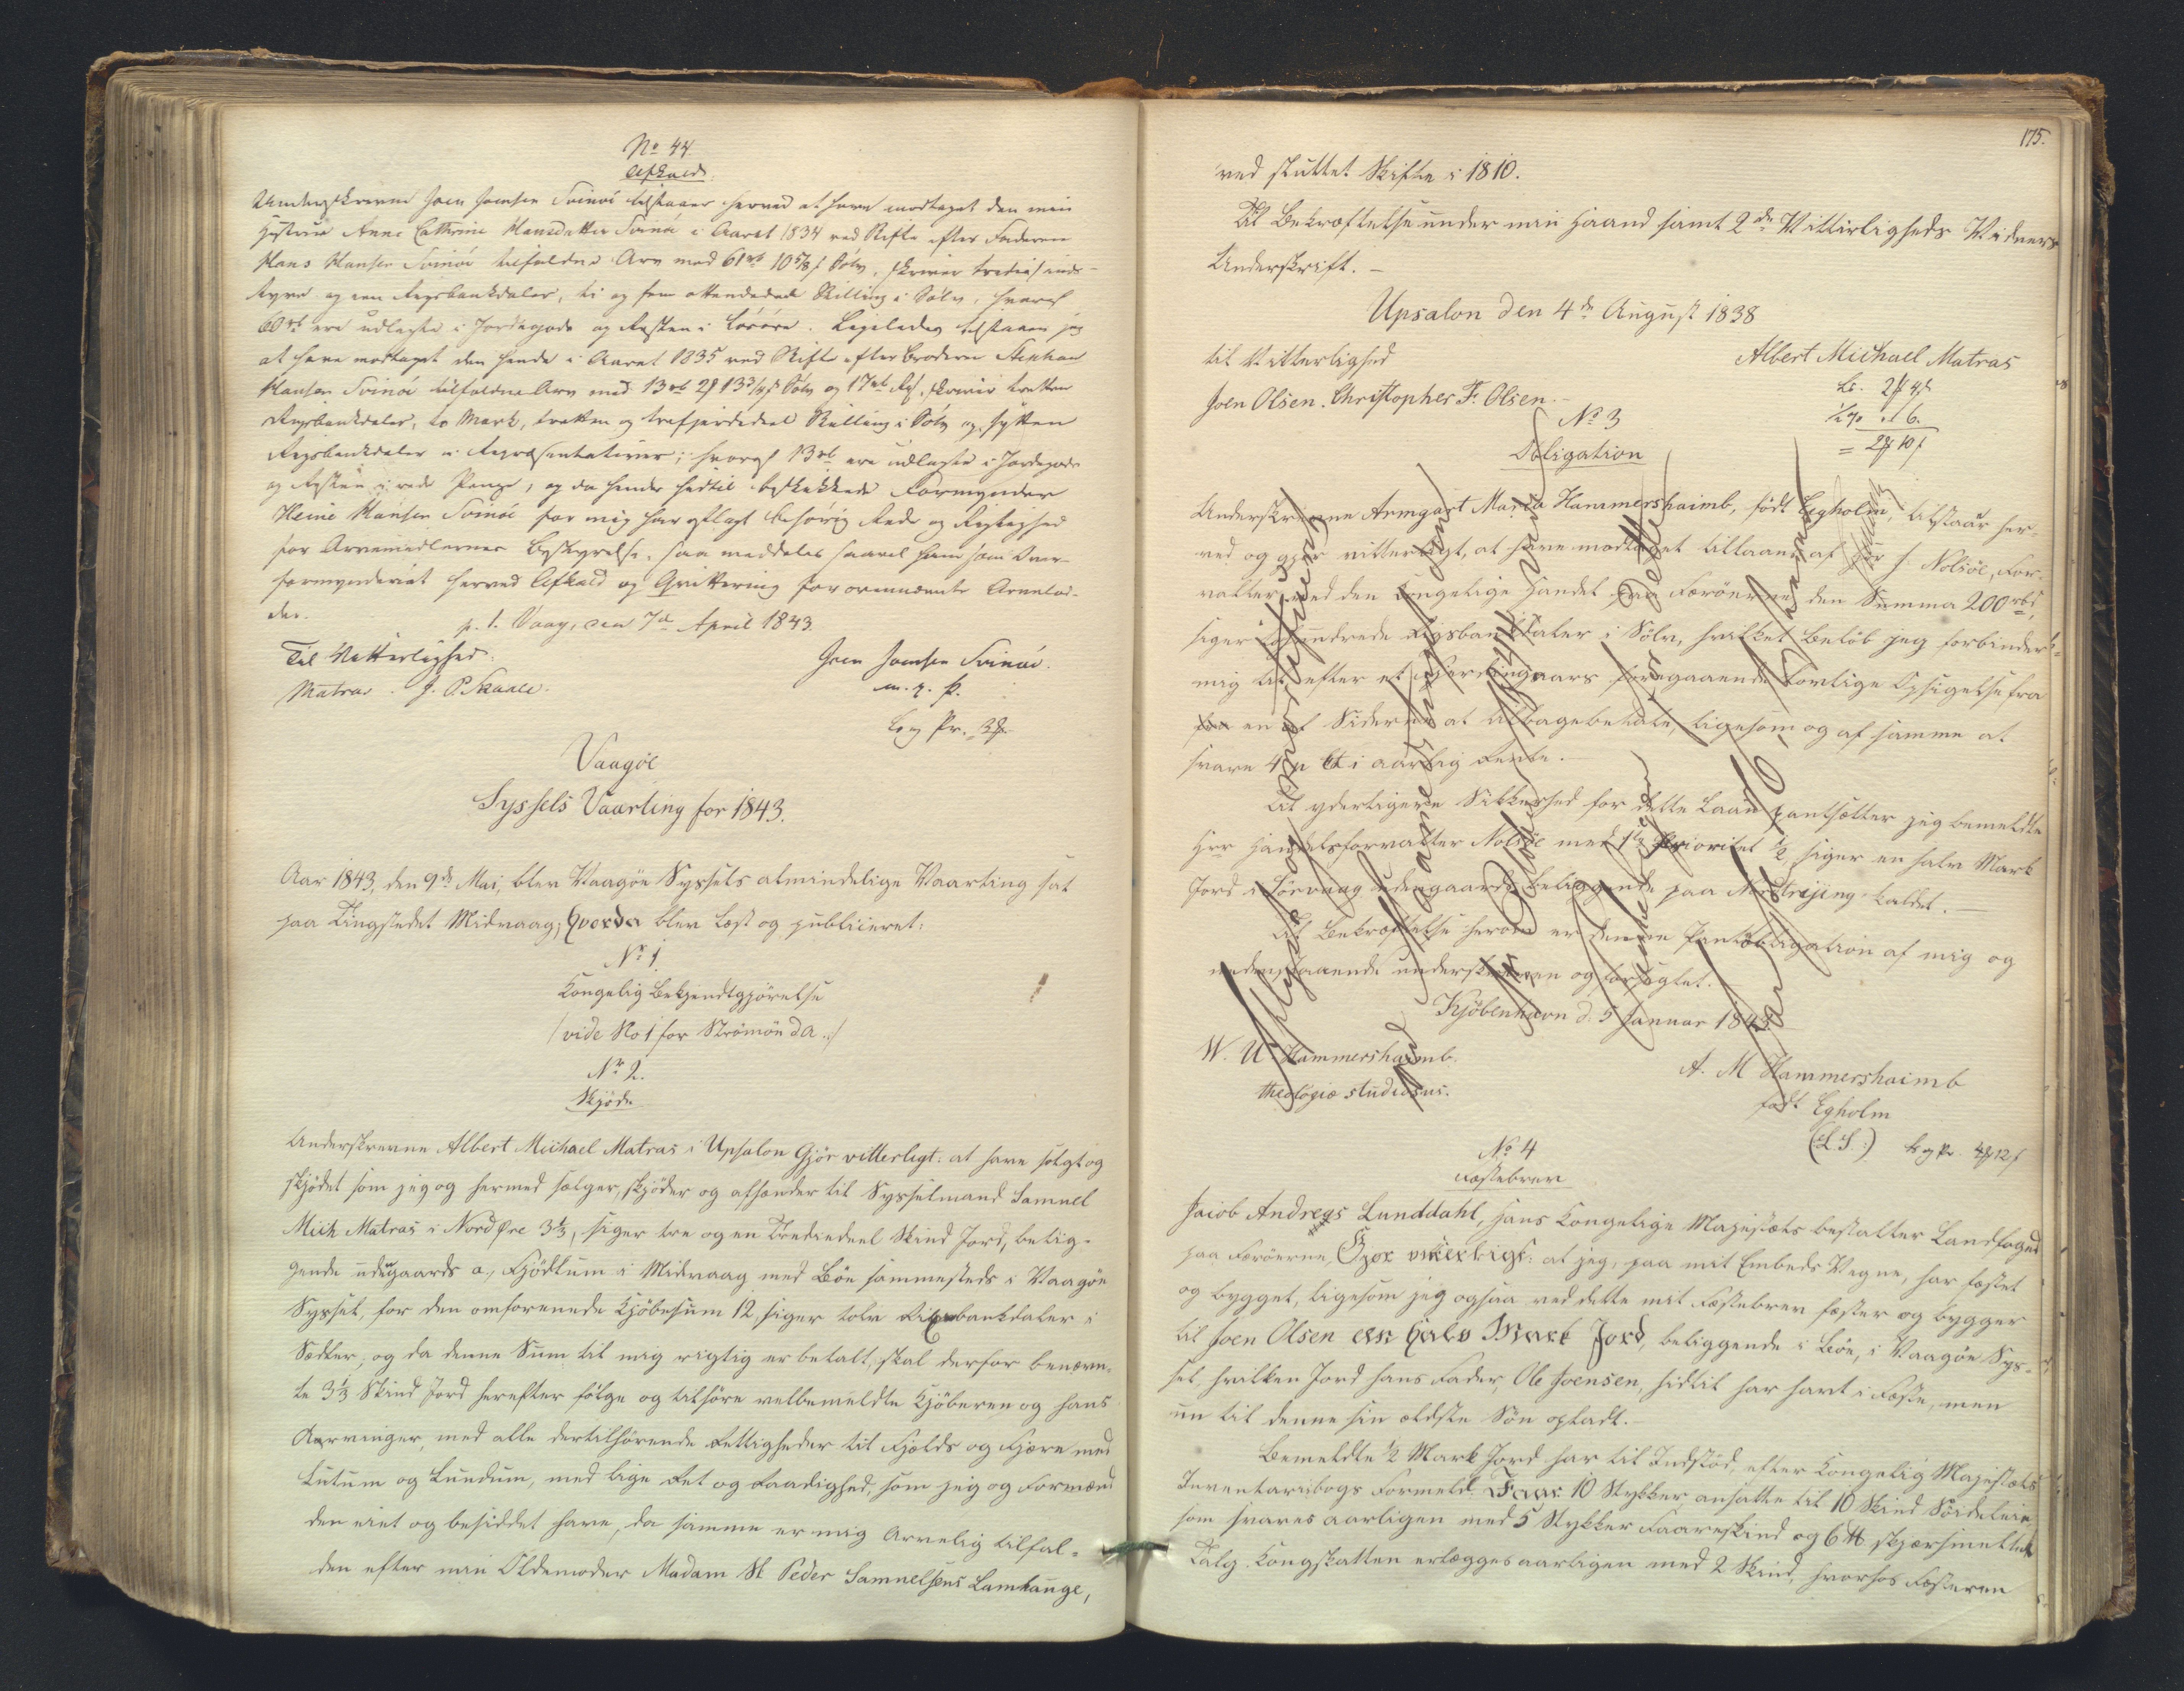 No 44.
Afkald.
Underskrevne Joen Joensen Svinöe tilstaaer herved at have modtaget den min
Hustrue Anne Cathrine Hansdatter Svinöe i Aaret 1834 ved Skifte efter Faderen
Hans Hansen Svinöe tilfaldne Arv med 61 rb 10 5/8 s Sölv, skriver tredsinds-
tyve og een Rigsbankdaler, ti og fem ottendedeel Skilling i Sölv, hvoraf
60 rb ere udlagte i Jordegods og Resten i Lösöre. Ligeledes tilstaaer jeg
at have modtaget den hende i Aaret 1835 ved Skifte efter Broderen Stephan
Hansen Svinöe tilfaldne Arv med 13 rb 2 # 13 3/4 s Sölv og 17 rb Rep. skriver tretten
Rigsbankdaler, to Mark, tretten og trefjerdedeel Skilling i Sölv og sytten
Rigsbankdaler i Repræsentativer; hvoraf 13 rb ere udlagte i Jordegods
og Resten i rede Penge; og da hendes hidtil beskikkede Formynder
Heine Hansen Svinöe for mig har aflagt behörig Rede og Rigtighed
for Arvemidlernes Bestyrelse, saa meddeles saavel ham som Over-
formynderiet herved Afkald og Qvittering for ovennævnte Arvelod-
der.
p. t. Vaag, den 7de April 1843.
Til Vitterlighed:
Joen Joensen Svinöe.
Matras. J. P. Skaale.
m. f. P.
Læg Pr. 3 #.
Vaagöe
Syssels Vaarting for 1843.
Aar 1843, den 9de Mai, blev Vaagöe Syssels almindelige Vaarting sat
paa Tingstedet Midvaag; hvorda blev læst og publiceret:
No 1
Kongelig Bekjendtgjörelse
/vide No 1 for Strömöe d. A./
No 2.
Skjöde
Underskrevne Albert Michael Matras i Upsalon Gjör vitterligt: at have solgt og
skjödet som jeg og hermed sælger, skjöder og afhænder til Sysselmand Samuel
Mich Matras i Nordøre 3 1/3, siger tre og en Trediedeel Skind Jord, belig-
gende udegaards a, Fjödtum i Midvaag med Böe sammesteds i Vaagöe
Syssel, for den omforenede Kjöbesum 12, siger tolv Rigsbankdaler i
Sedler; og da denne Sum til mig rigtig er betalt, skal derfor benævn-
te 3 1/3 Skind Jord herefter fölge og tilhöre velbemeldte Kjöberen og hans
Aarvinger, med alle dertilhörende Rettigheder til Fjelds og Fjære med
Lutum og Lundum, med lige Ret og Raadighed, som jeg og Formænd
den eiet og besiddet have, da samme er mig Arvelig tilfal-
den efter min Oldemoder Madam Sl Peder Samuelsens Lamhauge,
175.
ved sluttet Skifte i 1810.
Til Bekræftelse under min Haand samt 2de Vitterligheds Vidners
Underskrift. -
Upsalon den 4de August 1838
til Vitterlighed
Albert Michael Matras
Joen Olsen. Christopher F. Olsen. -
Læ. 2 # 4 s
1/2 % . . 6.
= 2 # 10 s
No 3
Obligation
Underskrevne Armgart Maria Hammershaimb, födt Egholm, tilstaaer her-
ved og gjör vitterligt, at have modtaget tillaans af Hr J. Nolsöe, For-
valter ved den Kongelige Handel paa Færöerne den Summa 200 rbd,
siger tohundrede Rigsbankdaler i Sölv, hvilket Belöb jeg forbinder
mig til efter et Fjerdingaars foregaaende lovlige Opsigelse fra
fra en af Siderne at tilbagebetale, ligesom og af samme at
svare 4 p Ct i aarlig Rente. -
Til yderligere Sikkerhed for dette Laan pantsætter jeg bemeldte
Hrr Handelsforvalter Nolsöe med 1ste Prioritet 1/2, siger en halv Mark
Jord i Sörvaag udengaards beliggende paa kaldet. -
Til Bekræftelse herom er denne Pantobligation af mig og
nedenstaaende underskreven og forseglet. -
Kjöbenhavn d. 5 Januar 1843
W. U. Hammershaimb.
theologiæ studiosus.
A. M Hammershaimb
födt Egholm
(L. S.) Læ og Pr. 4 # 12 s
No 4
Fæstebrev
Jacob Andreas Lunddahl, Hans Kongelige Majestæts bestalter Landfoged
paa Færöerne, Gjør vitterligt: at jeg, paa mit Embeds Vegne, har fæstet
og bygget, ligesom jeg ogsaa ved dette mit Fæstebrev fæster og bygger
til Joen Olsen een halv Mark Jord, beliggende i Böe, i Vaagöe Sys-
sel, hvilken Jord hans Fader, Ole Joensen, hidtil har havt i Fæste, men
nu til denne sin ældste Sön opladt. -
Bemeldte 1/2 Mark Jord har til Indstöd, efter Kongelig Majestæts
Inventariibogs Formeld: Faar 10 Stykker, ansatte til 10 Skind Söideleie
som svares aarligen med 5 Stykker Faareskind og 6 # skjærsmeltet
Talg. Kongskatten erlægges aarligen med 2 Skind, hvorhos Fæsteren